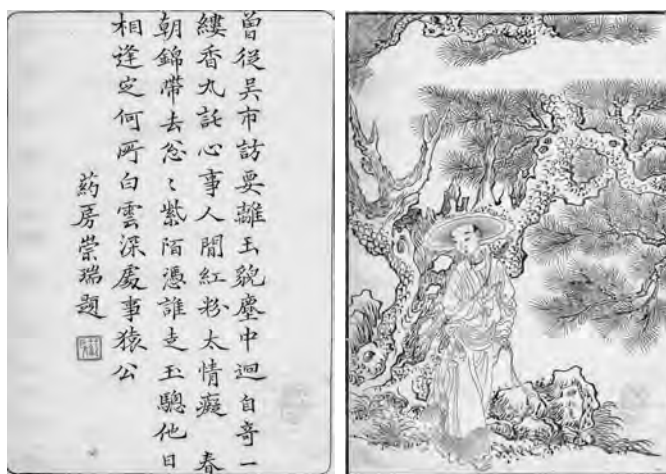 曾從吳市訪要離玉貌塵中迥自奇一
縷香丸託心事人間紅粉太情癡　春
朝錦帶去怱〻紫陌憑誰走玉驄他日
相逢定何所白雲深處事猿公
葯房崇瑞題